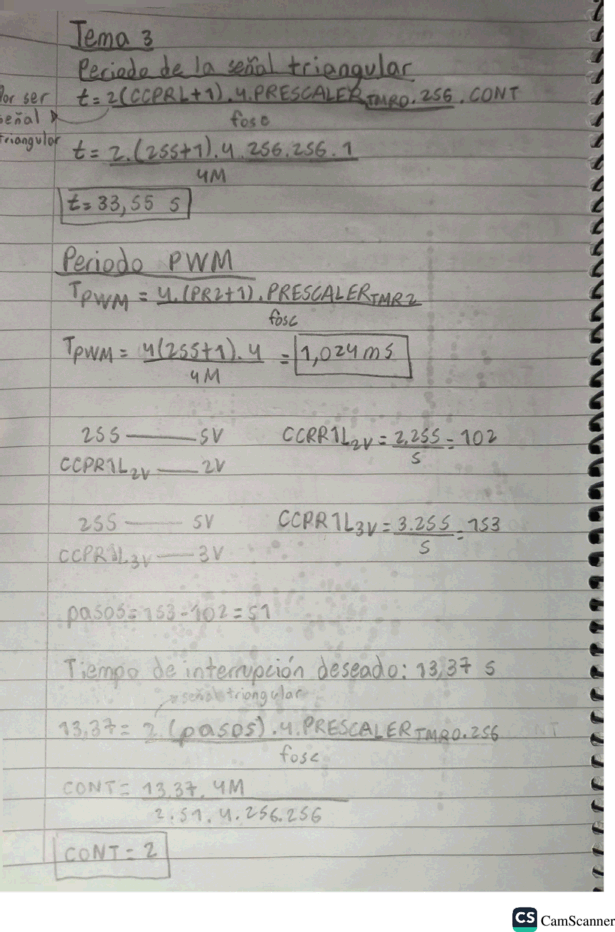 Tema 3
Periodo de la señal triangular
Por ser señal triangular
t = 2(CCPRL+1).4.PRESCALER TMR0.256.CONT
fosc
t = 2.(255+1).4.256.256.1
4M
t = 33,55 s
Periodo PWM
TPWM = 4.(PR2+1).PRESCALER TMR2
fosc
TPWM = 4(255+1).4 = 1,024 ms
4M
255 —— 5V CCRR1L2V = 2.255 = 102
5
CCPR1L2V —— 2V
255 —— 5V CCPR1L3V = 3.255 = 153
5
CCPR1L3V —— 3V
pasos = 153-102 = 51
Tiempo de interrupción deseado: 13,37 s
señal triangular
13,37 = 2.(pasos).4.PRESCALER TMR0.256
fosc
CONT = 13,37.4M
2.51.4.256.256
CONT = 2
CS CamScanner